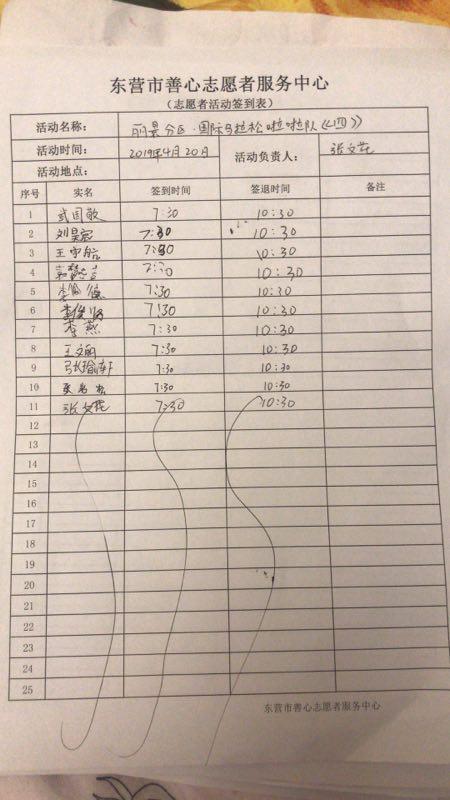 东营市善心志愿者服务中心
（志愿者活动签到表）
活动名称： 丽景分区·国际马拉松啦啦队《四》
活动时间： 2019年4月20日 活动负责人： 张文花
活动地点：
序号 实名 签到时间 签退时间 备注
1 武国敬 7:30 10:30
2 刘昊宸 7:30 10:30
3 王宇航 7:30 10:30
4 7:30 10:30
5 7:30 10:30
6 7:30 10:30
7 李燕 7:30 10:30
8 王文丽 7:30 10:30
9 张瑜轩 7:30 10:30
10 7:30 10:30
11 张文花 7:30 10:30
12
13
14
15
16
17
18
19
20
21
22
23
24
25
东营市善心志愿者服务中心